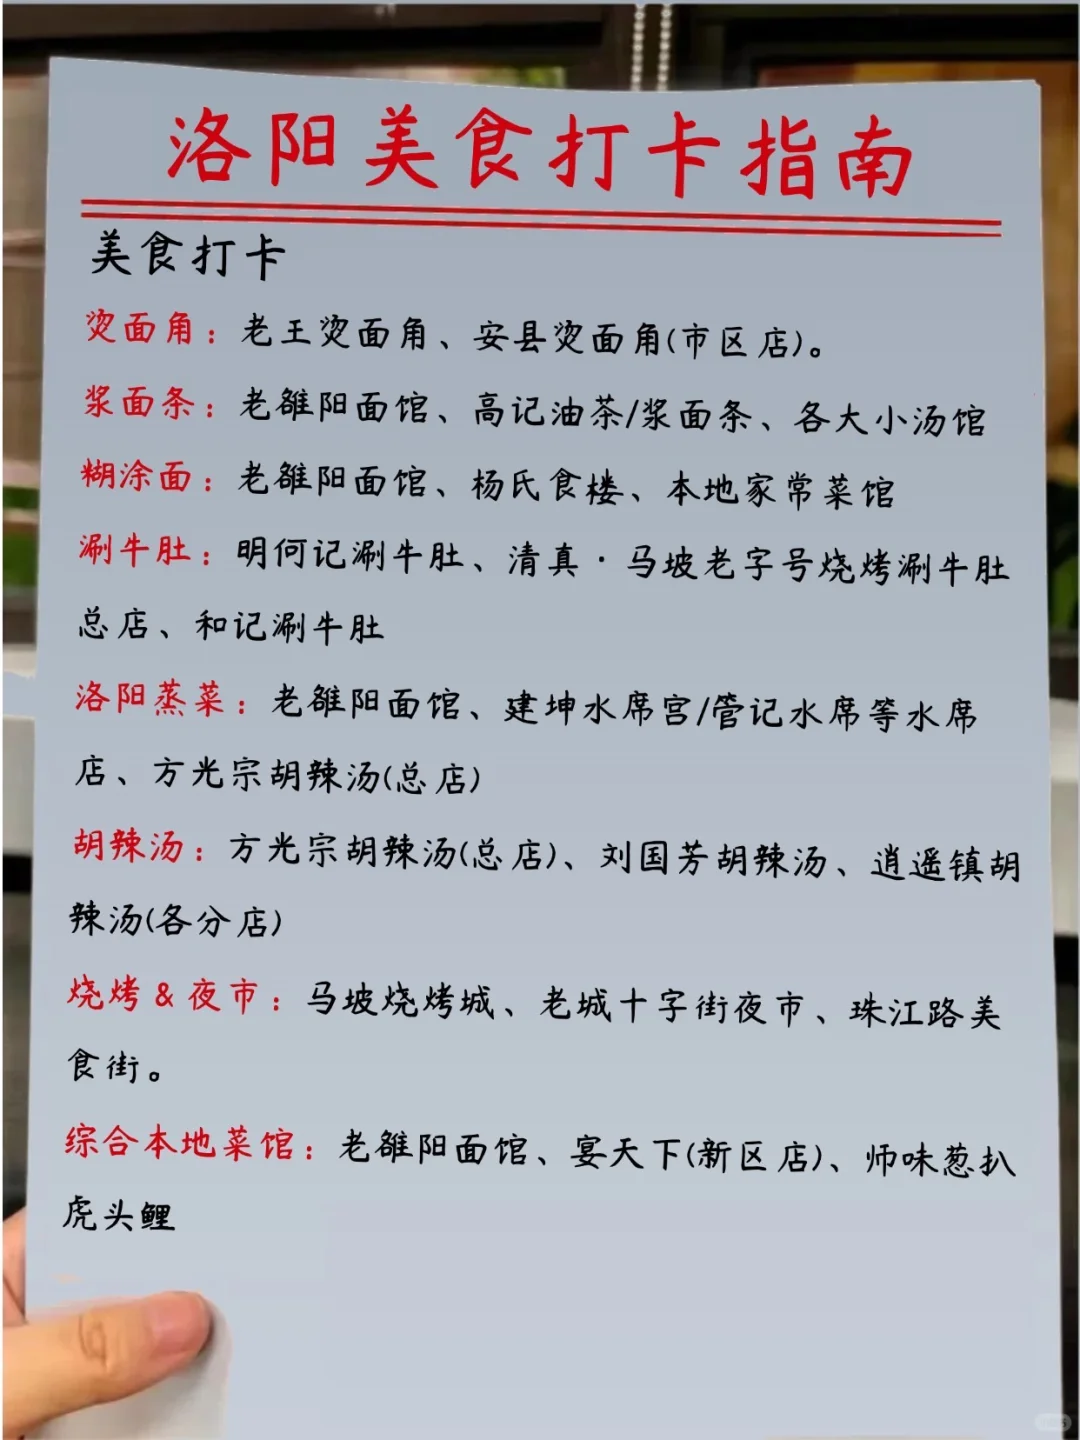 洛阳美食打卡指南
美食打卡
烫面角：老王烫面角、安县烫面角(市区店)。
浆面条：老雒阳面馆、高记油茶/浆面条、各大小汤馆
糊涂面：老雒阳面馆、杨氏食楼、本地家常菜馆
涮牛肚：明何记涮牛肚、清真·马坡老字号烧烤涮牛肚
总店、和记涮牛肚
洛阳蒸菜：老雒阳面馆、建坤水席宫/管记水席等水席
店、方光宗胡辣汤(总店)
胡辣汤：方光宗胡辣汤(总店)、刘国芳胡辣汤、逍遥镇胡
辣汤(各分店)
烧烤&夜市：马坡烧烤城、老城十字街夜市、珠江路美
食街。
综合本地菜馆：老雒阳面馆、宴天下(新区店)、师味葱扒
虎头鲤